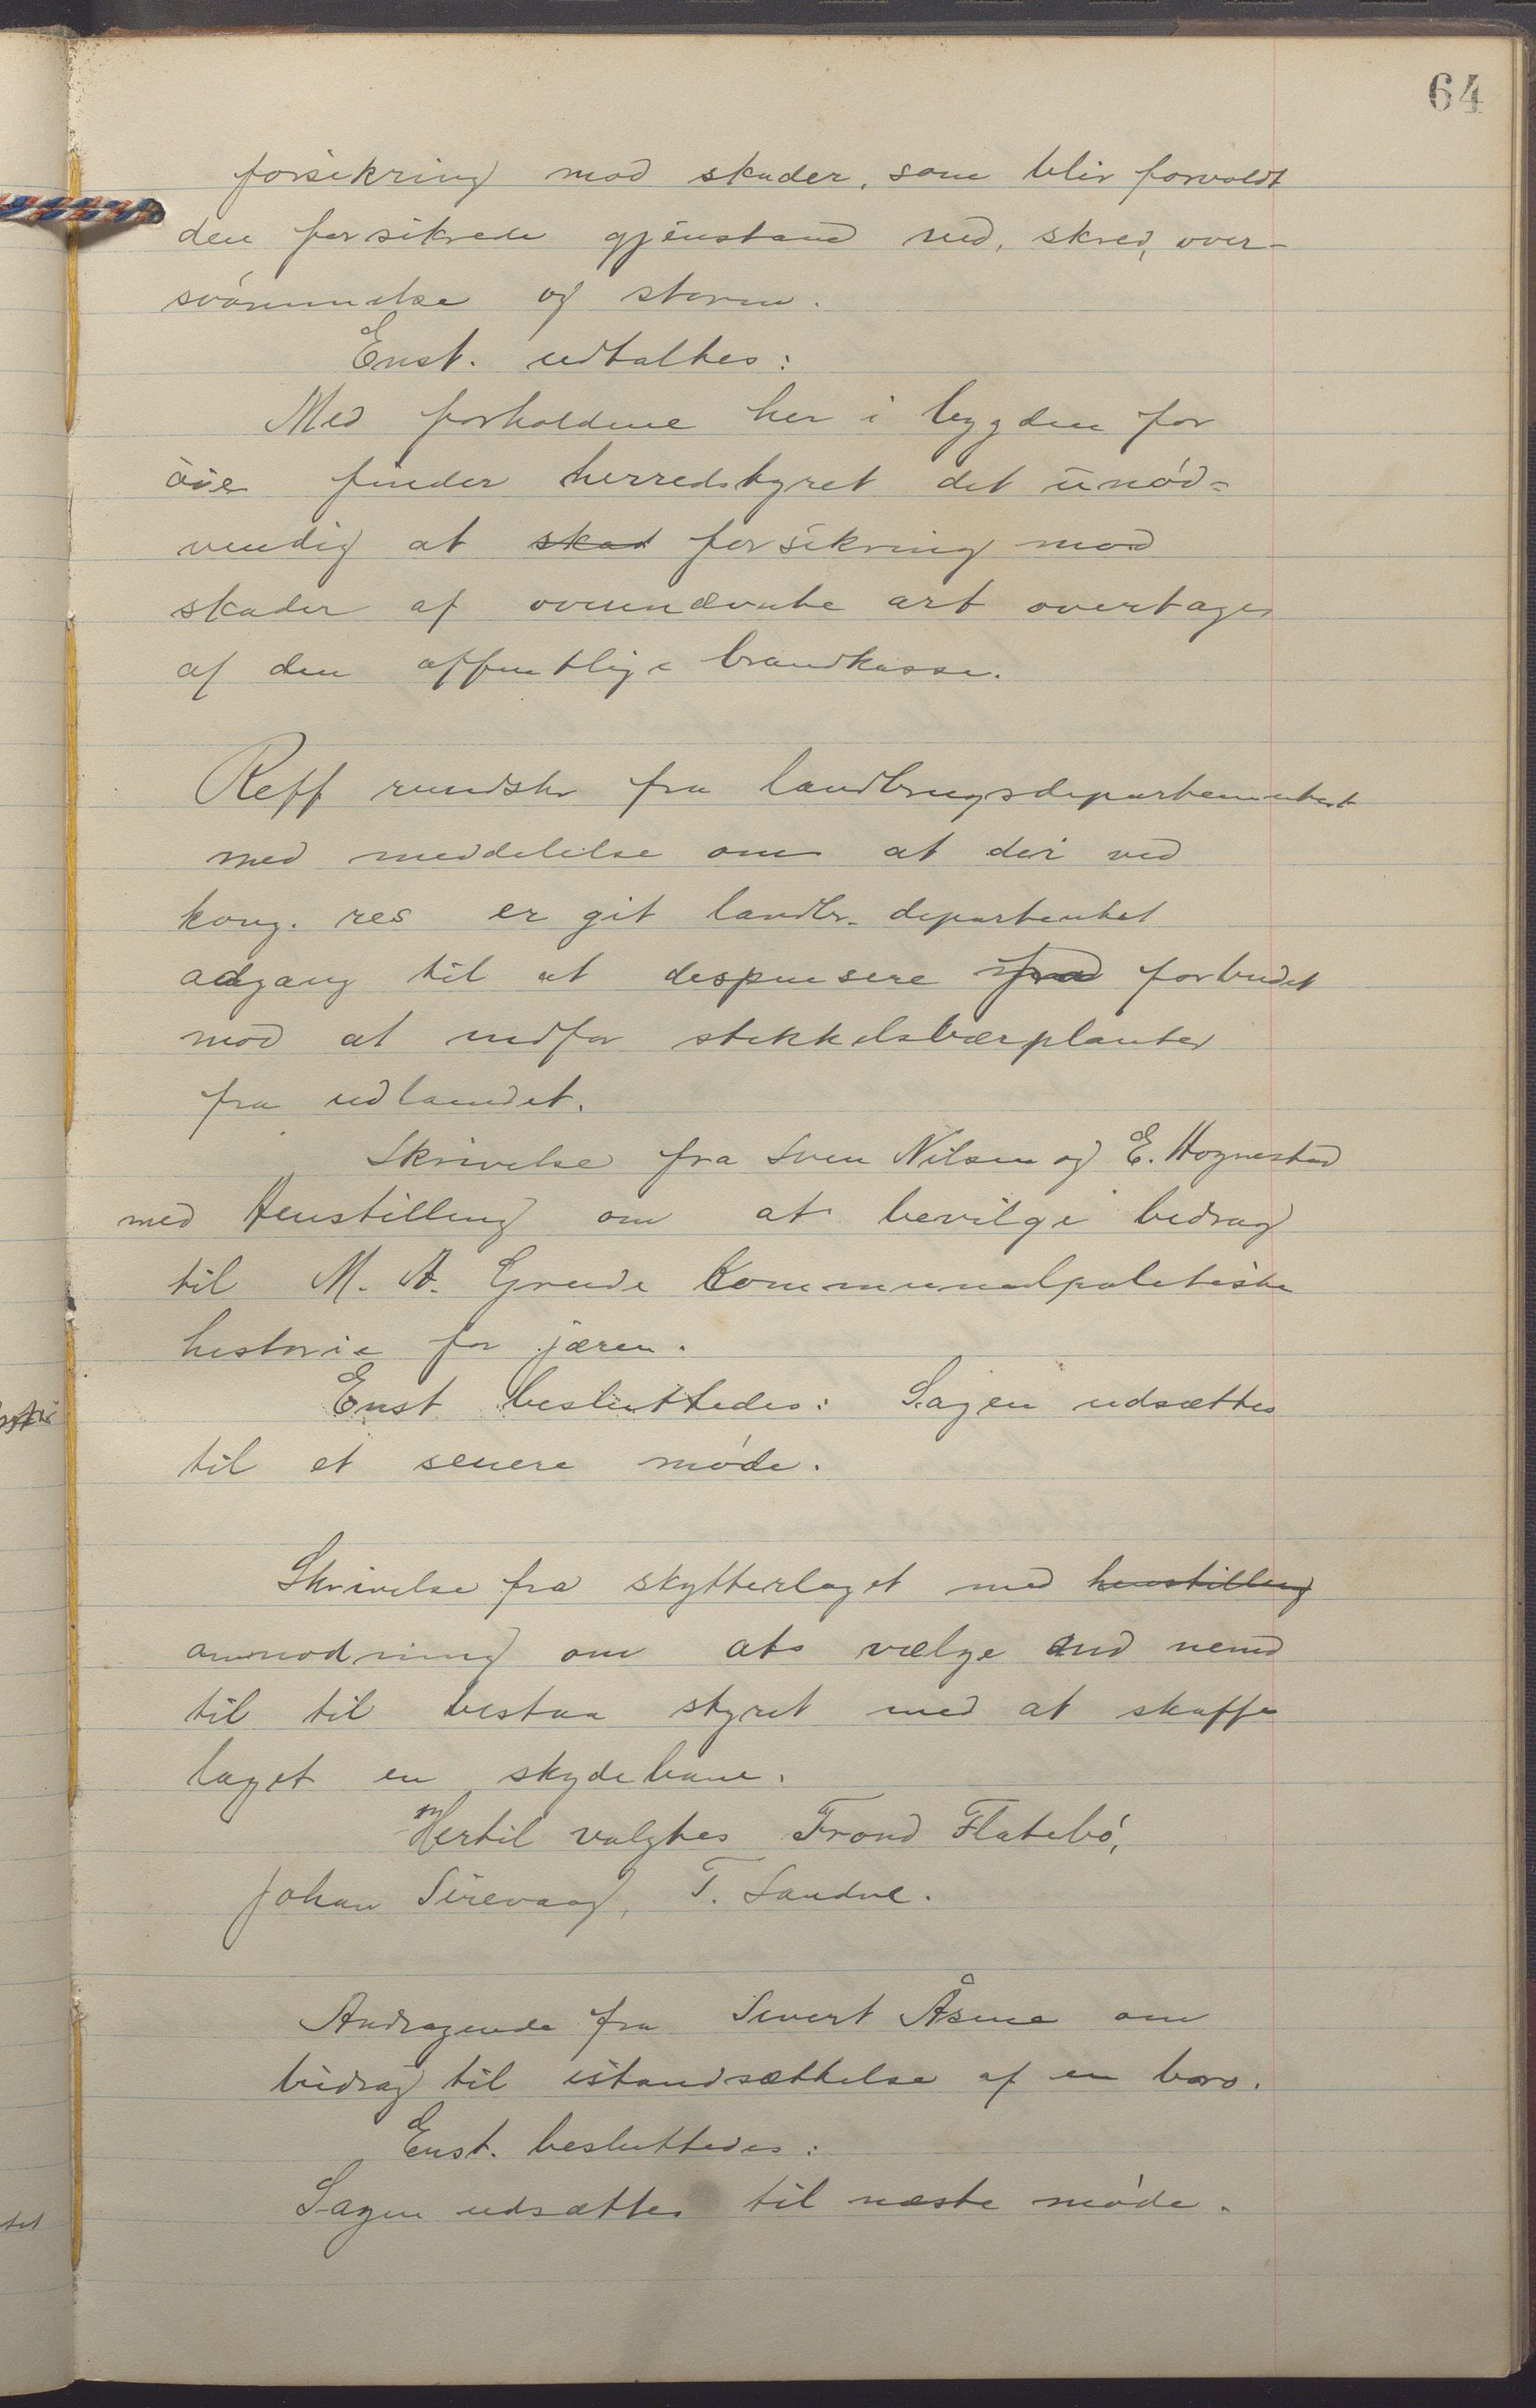 64
forsikring mod skader, som blir forvoldt
den forsikrede gjenstand ved, skred, over-
svömmelse og storm.
Enst. udtaltes:
Med forholdene her i bygden for
öie finder herredstyret det unöd=
vendig at skad forsikring mod
skader af ovennævnte art overtages
af den offentlige brandkasse.
Reff rundskr fra landbrugsdepartementet
med meddelelse om at der ved
kong. res er git landbr. departentet
adgang til at despensere fra forbudet
mod at indför stikkelsbærplanter
fra udlandet.
Skrivelse fra Sven Nilsen og E. Hognestad
med Henstilling om at bevilge bidrag
til M. A. Grude Kommunalpoletiske
historie for jæren.
Enst besluttedes: Sagen udsættes
til et senere möde.
Skrivelse fra skytterlaget med henstilling
anmodning om at vælge end nemd
til til bestaa styret med at skaffe
laget en skydebane.
Hertil valgtes Trond Flatebö,
Johan Sirevaag, T. Sandve.
Andragende fra Sivert Åsene om
bidrag til istandsættelse af en bro.
Enst. besluttedes:
Sagen udsættes til næste möde.